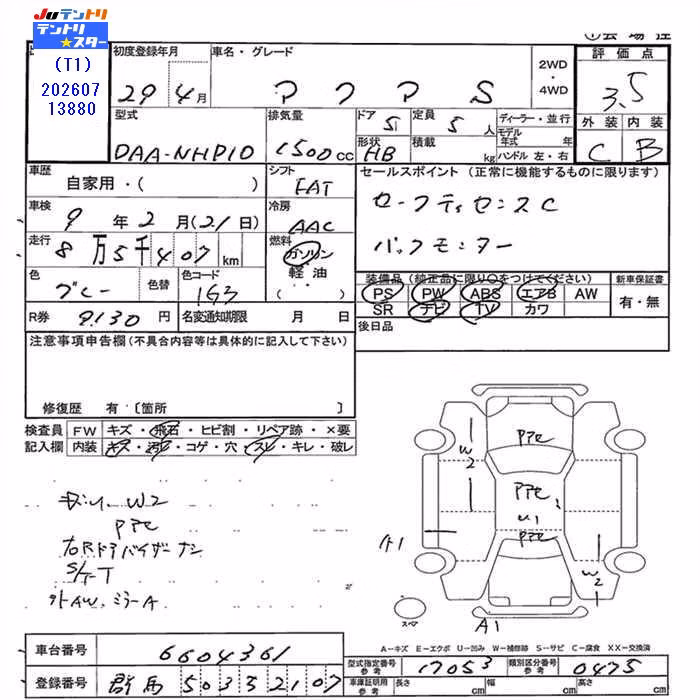 Juテントリ
テントリ
★スター
(T1)
202607
13880
①会場控
初度登録年月
29年4月
車名・グレード
アクア S
2WD・4WD
評価点
3.5
型式
DAA-NHP10
排気量
1500cc
ドア
5
定員
5人
形状
HB
積載
kg
ディーラー・並行
モデル年式 年
ハンドル 左・右
外装 内装
C B
車歴
自家用・( )
シフト
FAT
セールスポイント (正常に機能するものに限ります)
セーフティセンスC
バックモニター
車検
9年2月(21日)
冷房
AAC
走行
8万5千407km
燃料
ガソリン
軽油
( )
色
グレー
色替
色コード
1G3
装備品(純正品に限り○をつけてください)
PS PW ABS エアB AW
SR ナビ TV カワ
新車保証書
有・無
R券 9130円
名変通知期限 月 日
後日品
注意事項申告欄(不具合内容等は具体的に記入して下さい)
修復歴 有〔箇所 〕
検査員記入欄
FW キズ・飛石・ヒビ割・リペア跡・×要
内装 キズ・汚れ・コゲ・穴・スレ・キレ・破レ
W2
PPC
右Rドアバイザーナシ
S/T-T
外AW、ミラーA
PPC
W2
PPC
U1
PPC
A1
W2
スペア
A1
A-キズ E-エクボ U-凹み W-補修跡 S-サビ C-腐食 XX-交換済
車台番号 6604361
登録番号 群馬 503 ス 2107
型式指定番号 参考 17053
類別区分番号 参考 0475
車庫証明用 参考 長さ cm 幅 cm 高さ cm